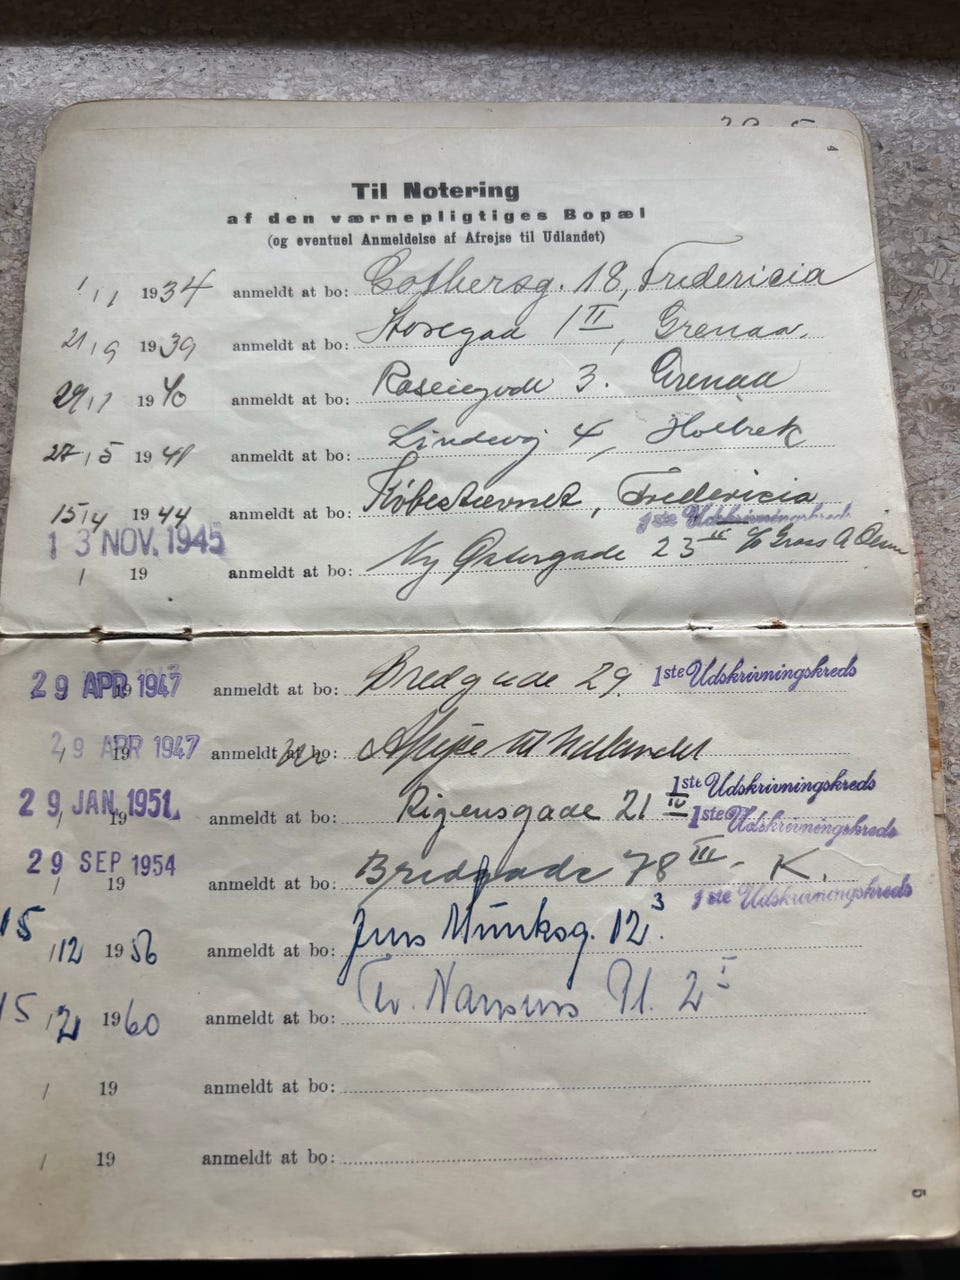 Til Notering
af den værnepligtiges Bopæl
(og eventuel Anmeldelse af Afrejse til Udlandet)
1/1 1934 anmeldt at bo: Gothersg. 18, Fredericia
21/9 1939 anmeldt at bo: Storegad 1 II, Grenaa.
29/1 1940 anmeldt at bo: 3. Grenaa
27/5 1941 anmeldt at bo: Lindevej 4, Holbæk
15/4 1944 anmeldt at bo: Købestævnet, Fredericia
1ste Udskrivningskreds
13 NOV. 1945 / 19 anmeldt at bo: Ny Østergade 23
29 APR 1947 19 anmeldt at bo: Bredgade 29. 1ste Udskrivningskreds
29 APR 1947 / 19 anmeldt bo: Afrejse til Udlandet
1ste Udskrivningskreds
29 JAN. 1951 / 19 anmeldt at bo: Rigensgade 21 IV
1ste Udskrivningskreds
29 SEP 1954 / 19 anmeldt at bo: Bredgade 78 III - K.
1ste Udskrivningskreds
15/12 1956 anmeldt at bo: Jens Munksg. 12 3.
15/12 1960 anmeldt at bo: Pl. 2 I
/ 19 anmeldt at bo:
/ 19 anmeldt at bo:
5